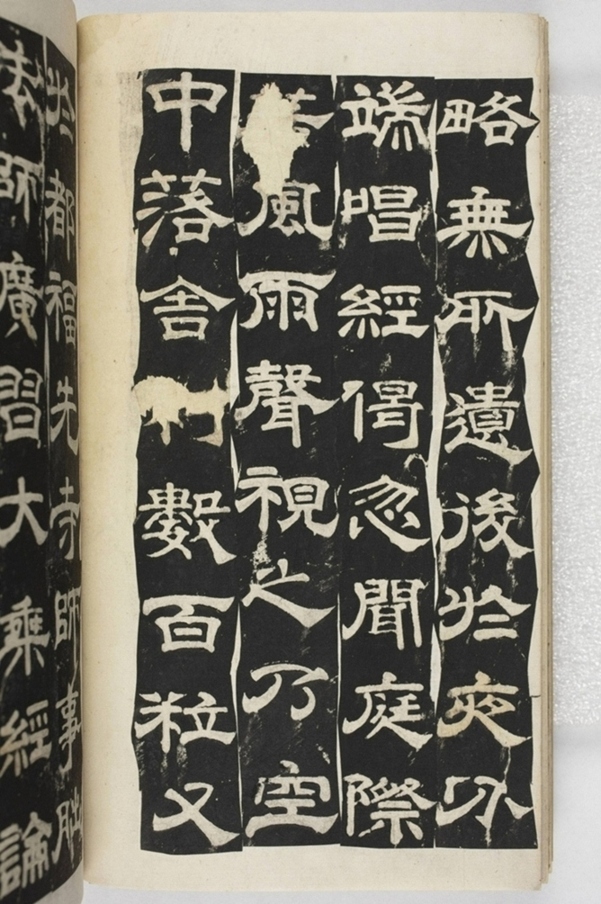 略無所遺後於夜分
端唱經偈忽聞庭際
風雨聲視之乃空
中落舍數百粒又
於都福先寺師事朏
法師廣習大乘經論